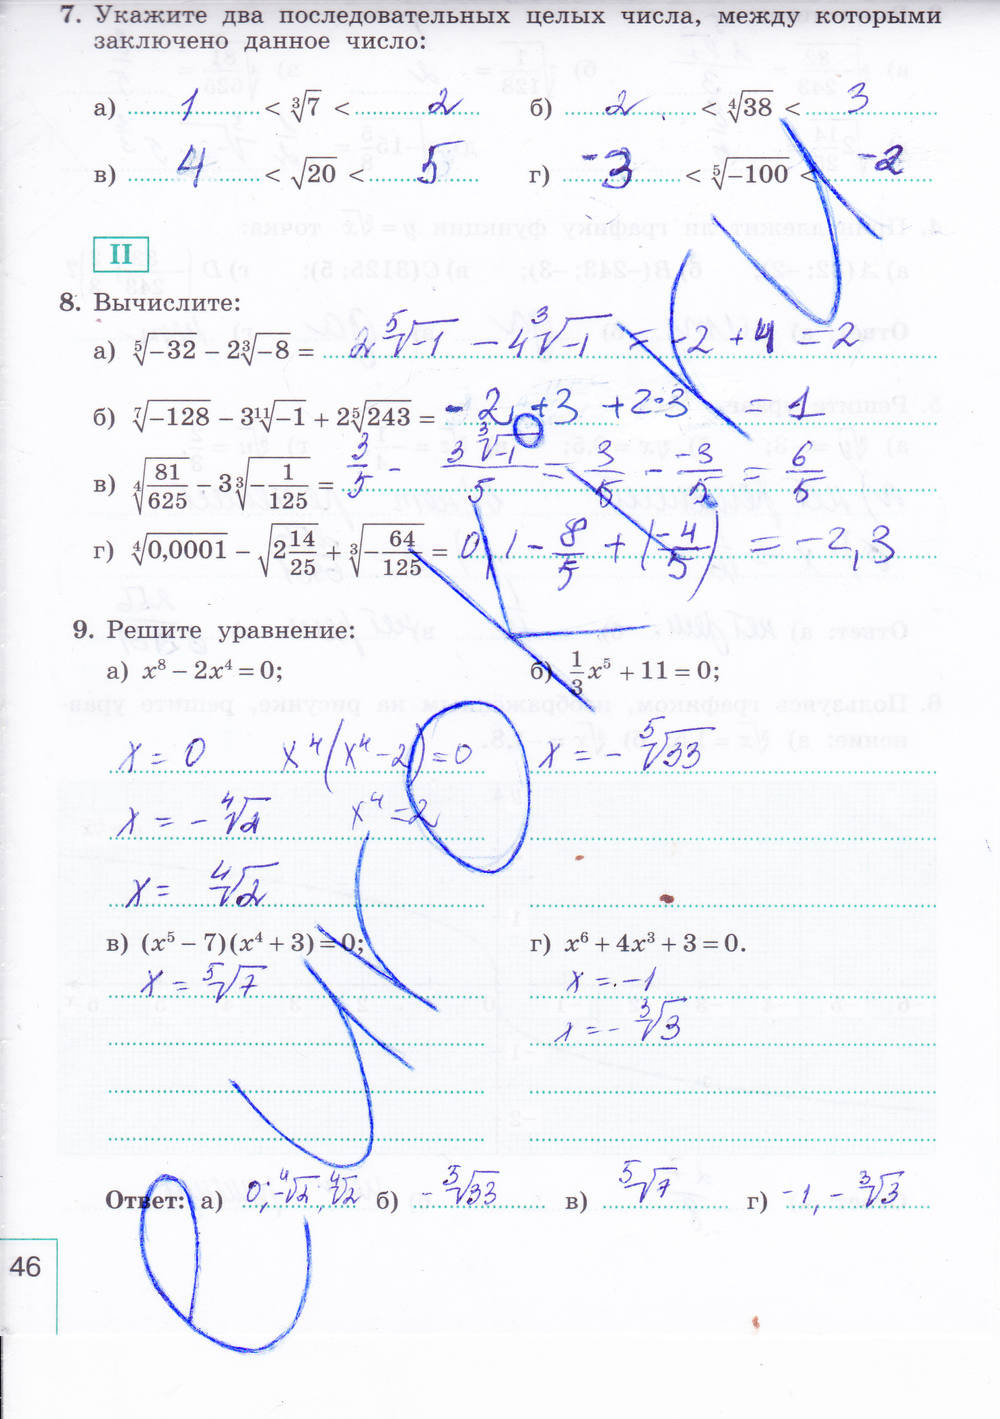 7. Укажите два последовательных целых числа, между которыми
заключено данное число:
а) 1 < ∛7 < 2 б) 2 < ∜38 < 3
в) 4 < √20 < 5 г) -3 < ⁵√−100 < -2
II
8. Вычислите:
а) ⁵√−32 − 2∛−8 = 2 ⁵√-1 − 4 ∛-1 = -2 + 4 = 2
б) ⁷√−128 − 3 ¹¹√−1 + 2 ⁵√243 = - 2 + 3 + 2·3 = 1
в) ∜(81/625) − 3∛(−1/125) = 3/5 - (3 ∛-1)/5 = 3/5 - (-3)/5 = 6/5
г) ∜0,0001 − √(2 14/25) + ∛(−64/125) = 0,1 - 8/5 + (-4/5) = -2,3
9. Решите уравнение:
а) x⁸ − 2x⁴ = 0; б) 1/3 x⁵ + 11 = 0;
x = 0 x⁴(x⁴-2) = 0 x = - ⁵√33
x = - ∜2 x⁴ = 2
x = ∜2
в) (x⁵ − 7)(x⁴ + 3) = 0; г) x⁶ + 4x³ + 3 = 0.
x = ⁵√7 x = -1
x = - ∛3
Ответ: а) 0; -∜2, ∜2 б) - ⁵√33 в) ⁵√7 г) -1, - ∛3
46